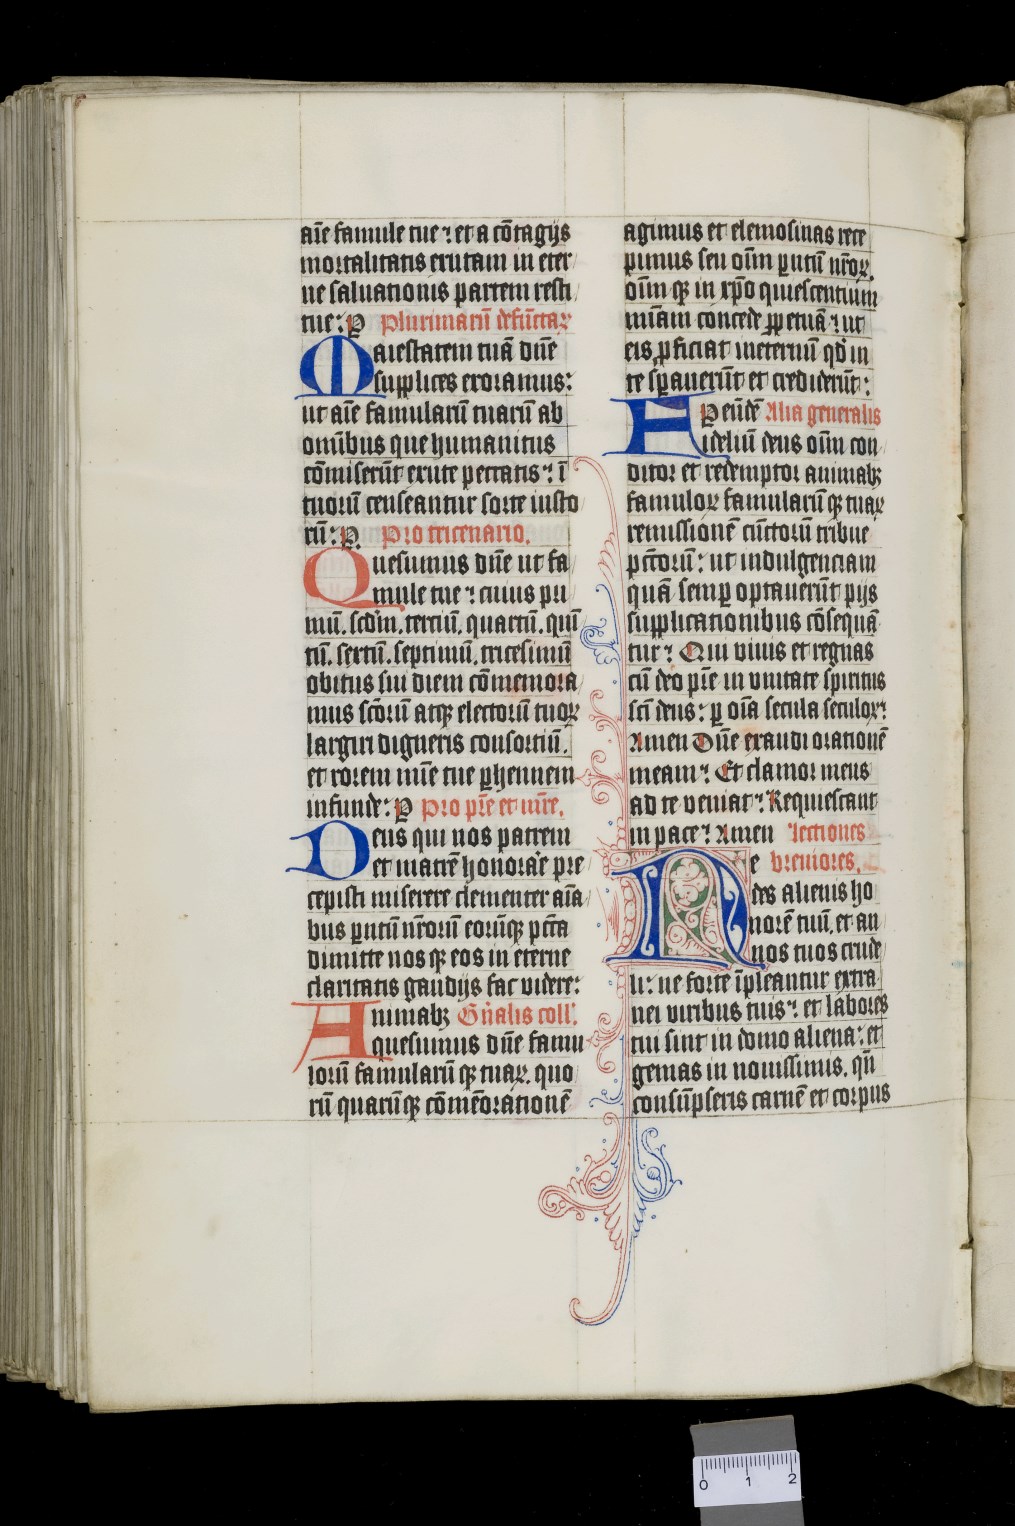 aīe famule tue ⁊ et a cōtagijs
mortalitatis exutam in eter
ne saluationis partem resti
tue: P Plurimarū defūctaꝝ
Maiestatem tuā dn̄e
supplices exoramus:
ut aīe famularū tuarū ab
omībus que humanitus
cōmiserūt exute peccatis ⁊ ī
tuorū censeantur sorte iusto
rū: P. Pro tricenario.
Quesumus dn̄e ut fa
mule tue ⁊ cuius pri
mū. scdm̄. terciū. quartū. quī
tū. sextū. septimū. tricesimū
obitus sui diem cōmemora
mus scōrū atqꝫ electorū tuoꝝ
largiri digneris consortiū.
et rorem mīe tue ꝑhennem
infunde: P Pro pr̄e et mr̄e.
Deus qui nos patrem
et matrē honorare pre
cepisti miserere clementer aīa
bus parentū nr̄orū eorūqꝫ pctā
dimitte nosqꝫ eos in eterne
claritatis gaudijs fac videre:
Animabꝫ Gn̄alis coll'.
quesumus dn̄e famu
lorū famularūqꝫ tuaꝝ. quo
rū quarūqꝫ cōmēorationē
agimus et elemosinas rece
pimus seu oīm parentū nr̄oꝝ.
oīmqꝫ in xpō quiescentium
mīam concede ꝑpetuā ⁊ ut
eis ꝓficiat ineternū qd̓ in
te sperauerūt et crediderūt:
P eūdē Alia generalis
Fidelium deus oīm con
ditor et redemptor animabꝫ
famuloꝝ famularūqꝫ tuaꝝ
remissionē cūctorū tribue
pctōrū: ut indulgenciam
quā semꝑ optauerūt pijs
supplicationibus cōsequā
tur ⁊ Qui viuis et regnas
cū deo pr̄e in vnitate spiritus
scī deus: ꝑ oīa secula seculoꝝ:
Amen Dn̄e exaudi orationē
meam ⁊ Et clamor meus
ad te veniat ⁊ Requiescant
in pace ⁊ Amen lectiones
Ne breuiores.
des alienis ho
norē tuū. et an
nos tuos crude
li: ne forte īpleantur extra
nei viribus tuis ⁊ et labores
tui sint in domo aliena: et
gemas in nouissimis. qn̄
consūpseris carnē et corpus